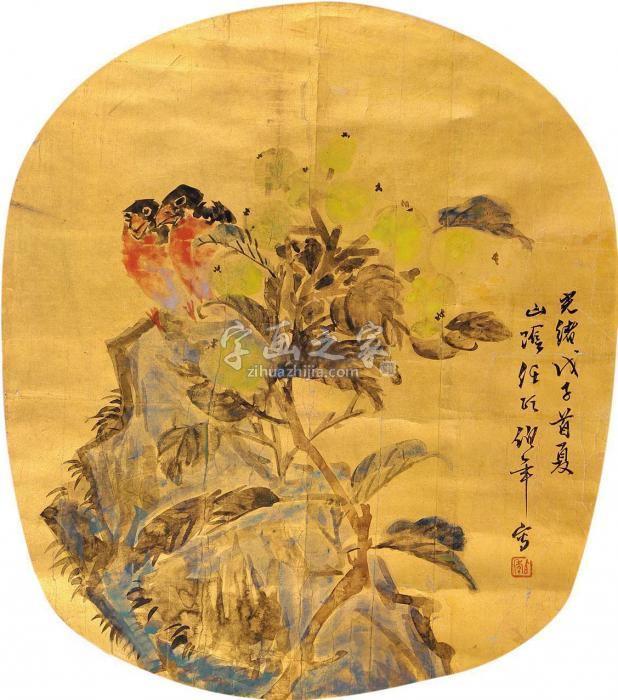 光緒戊子首夏
山陰任頤伯年寫
字画之家
zihuazhijia.com